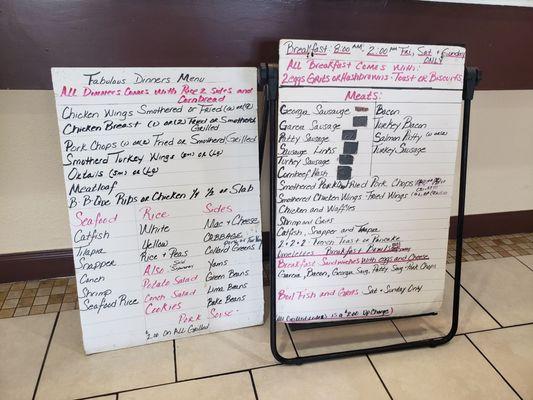 Fabulous Dinners Menu
All Dinners Comes with Rice 2 Sides and
Cornbread
Chicken Wings Smothered or Fried
Chicken Breast (1) or (2) Fried or Smothered
Grilled
Pork Chops (1) or (2) Fried or Smothered/Grilled
Smotherd Turkey Wings (sm) or (Lg)
Oxtails (sm) or (Lg)
Meatloaf
B-B-Que Ribs or Chicken 1/4 1/2 or Slab
Seafood
Catfish
Tilapia
Snapper
Conch
Shrimp
Seafood Rice
Rice
White
Yellow
Rice + Peas
Also
Potato Salad
Conch Salad
Cookies
Sides
Mac + Cheese
Cabbage
Collard Greens
Yams
Green Beans
Lima Beans
Bake Beans
Pork Souse
$2.00 on All Grilled
Sat + Sunday Only
Breakfast: 8:00 AM - 2:00 PM Fri, Sat + Sunday
Only
All Breakfast Comes With:
2 eggs Grits or Hashbrowns Toast or Biscuits
Meats:
Georgia Sausage
Garcia Sausage
Patty Sausage
Sausage Links
Turkey Sausage
Cornbeef Hash
Bacon
Turkey Bacon
Salmon Patty (1) or (2)
Turkey Sausage
Smothered Pork Fried Pork Chops
Smothered Chicken Wings Fried Wings
Chicken and Waffles
Shrimp and Grits
Catfish, Snapper and Tilapia
2-2-2 - French Toast or Pancake
Omelettes - Breakfast
Breakfast Sandwiches with eggs and Cheese
Garcia, Bacon, Georgia Saug, Patty Saug + Pork Chops
Boil Fish and Grits Sat + Sunday Only